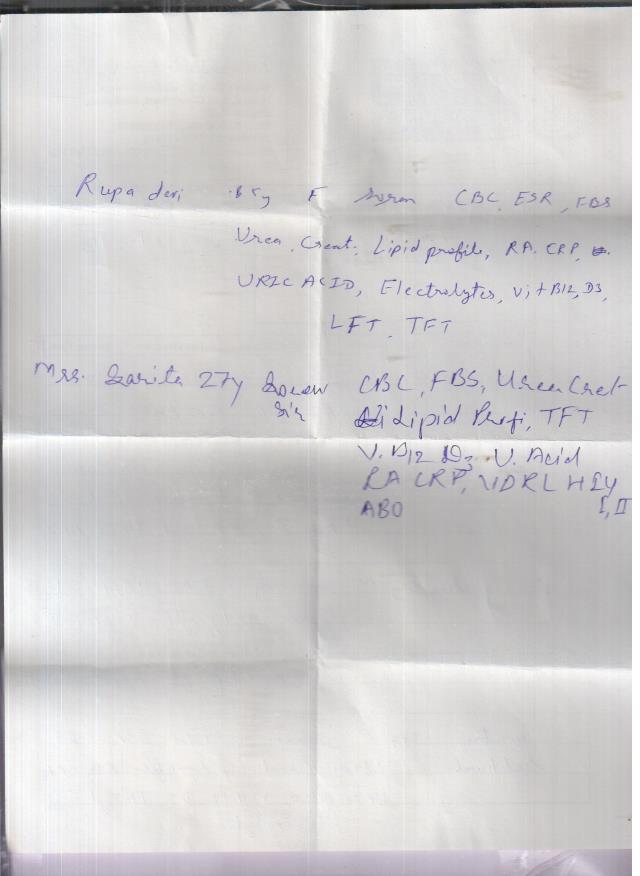 Rupa devi F CBC, ESR, FBS
Urea, Creat, Lipid profile, RA. CRP,
URIC ACID, Electrolytes, Vit B12, D3,
LFT, TFT
Mrs. Sarita 27y CBC, FBS, Urea Cret
Sir Lipid Profi, TFT
V. B12 D3 U. Acid
RA CRP, VDRL HIV
ABO I, II